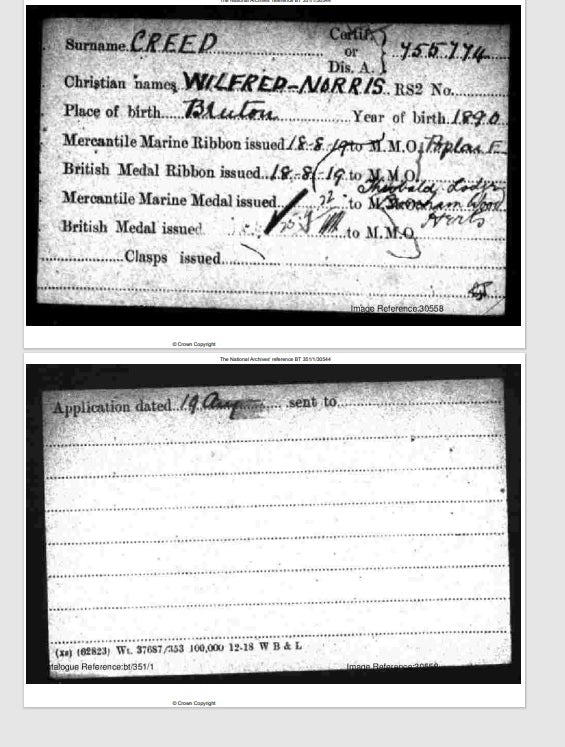 The National Archives' reference BT 351/1/30544
Surname. CREED
Certif.
or
Dis. A.
755774
Christian names WILFRED-NORRIS. RS2 No.
Place of birth Bruton Year of birth 1890
Mercantile Marine Ribbon issued 18.8.19 to M.M.O. Poplar E.
British Medal Ribbon issued 18.8.19 to M.M.O.
Theobald Lodge
Mercantile Marine Medal issued to M. Boreham Wood
Herts
British Medal issued to M.M.O.
Clasps issued
Image Reference:30558
© Crown Copyright
The National Archives' reference BT 351/1/30544
Application dated 19 Aug sent to
(xs) (62823) Wt. 37687/353 100,000 12-18 W B & L
talogue Reference:bt/351/1 Image Reference:30558
© Crown Copyright